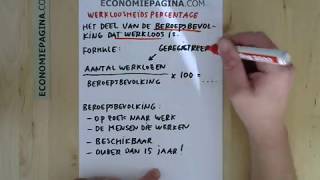 ECONOMIEPAGINA.COM
WERKLOOSHEIDS PERCENTAGE
HET DEEL VAN DE BEROEPSBEVOL-
KING DAT WERKLOOS IS.
FORMULE: GEREGISTREER
AANTAL WERKLOZEN
BEROEPSBEVOLKING
× 100 = ....
BEROEPSBEVOLKING:
- OP ZOEK NAAR WERK
- DE MENSEN DIE WERKEN
- BESCHIKBAAR
- OUDER DAN 15 JAAR!